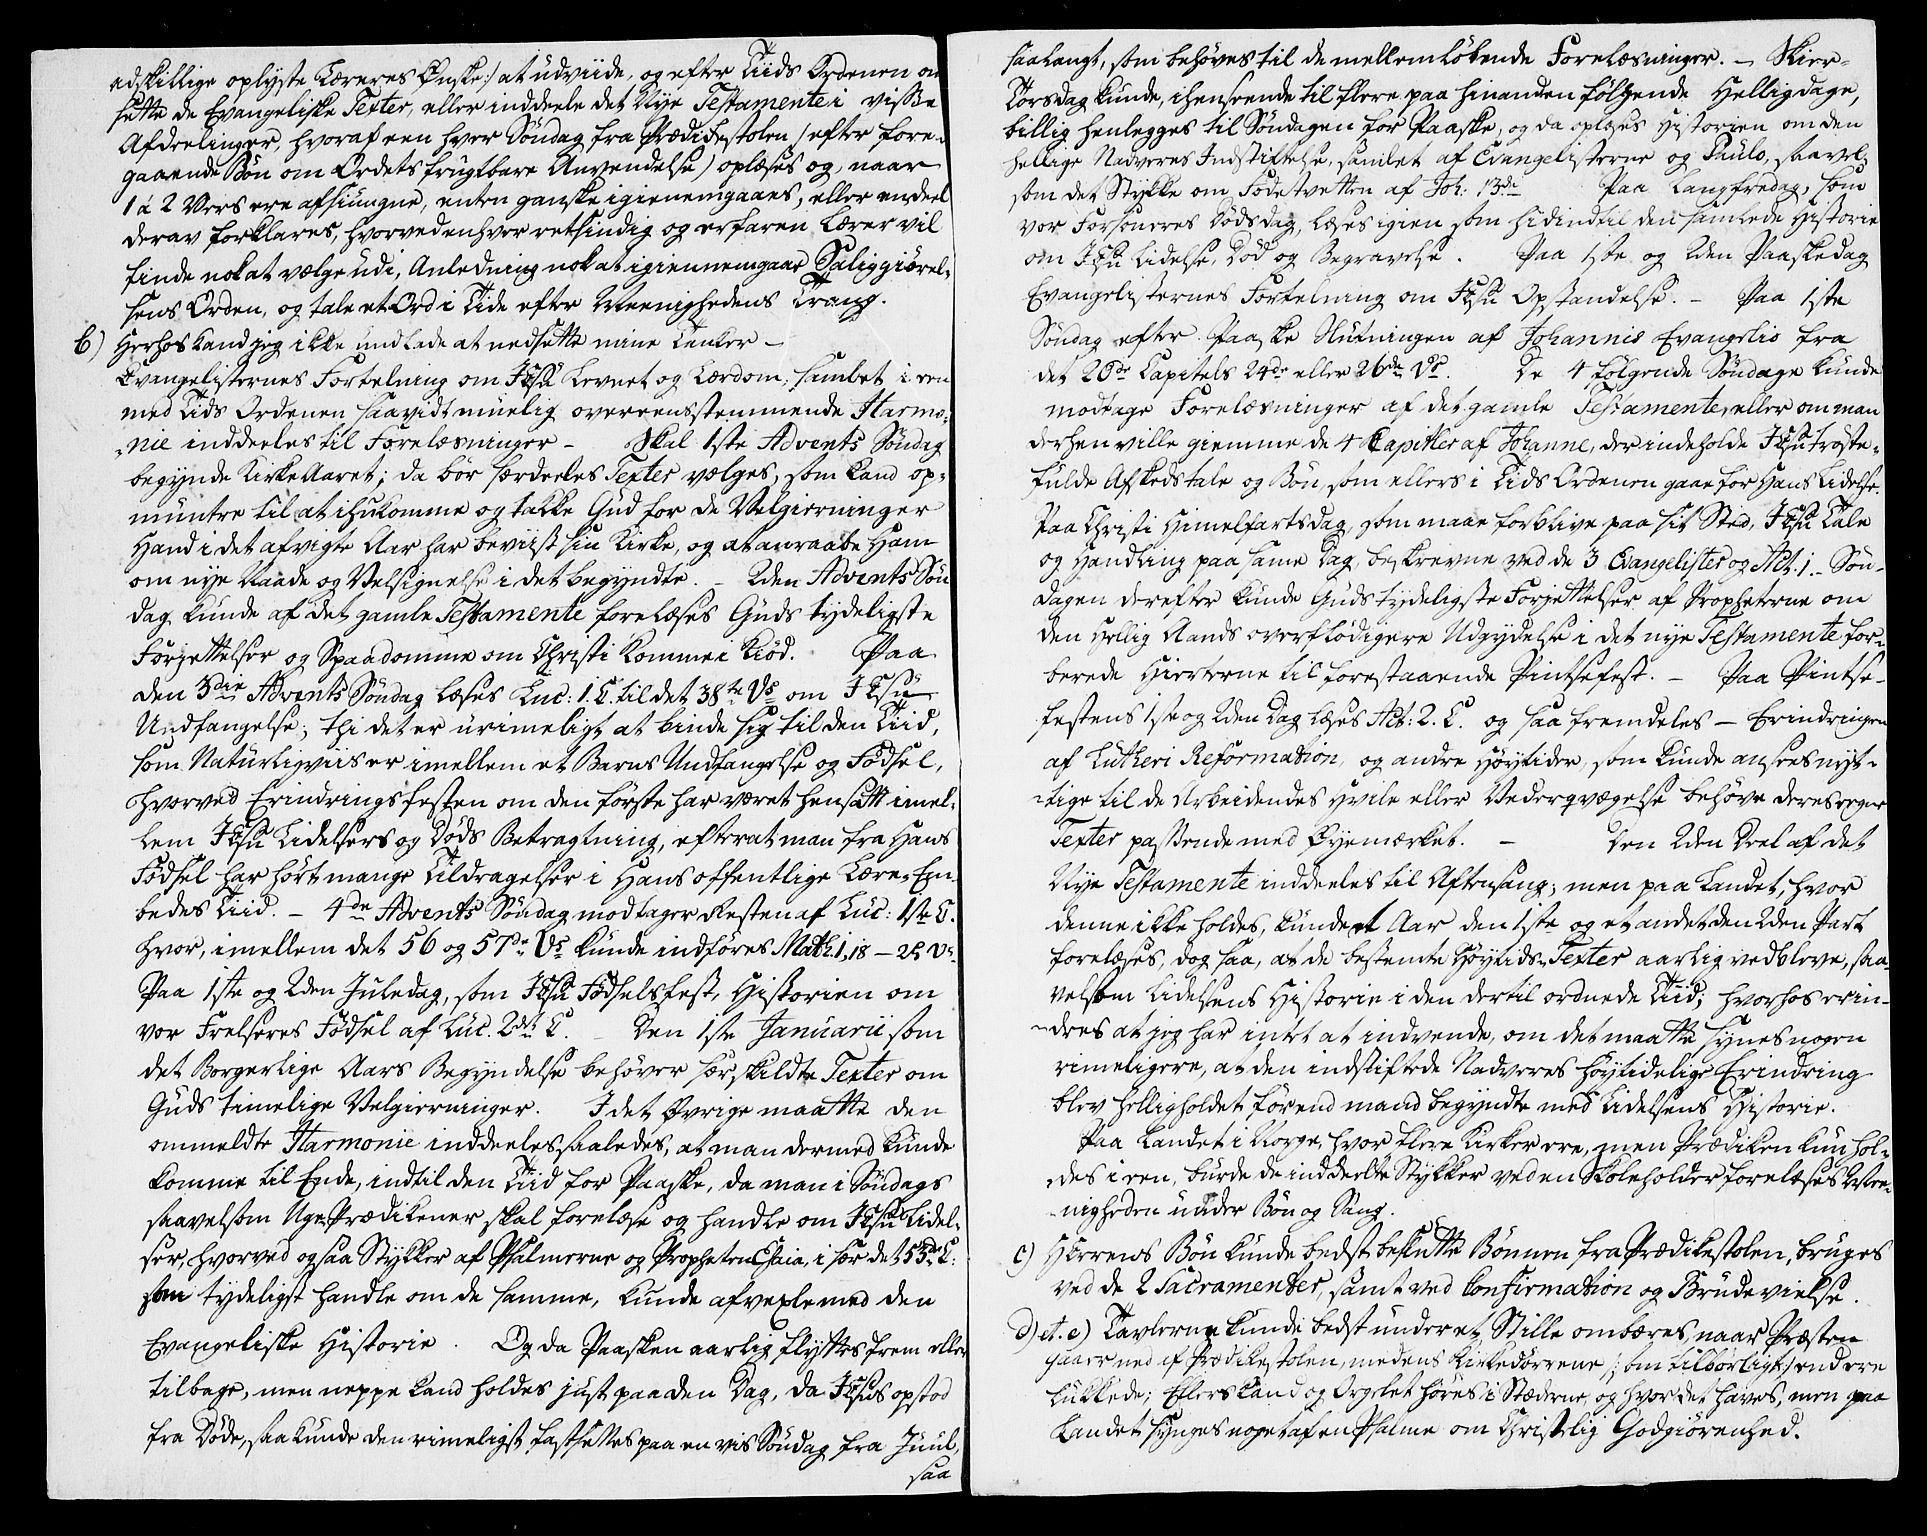 adskillige oplyste Læreres Ønske:/ at udviide, og efter Tiids Ordenen om
sætte de Evangeliske Texter, eller inddeele det Nye Testamente i visse
Afdeelinger, hvoraf een hver Søndag fra Prædikestolen /efter fore-
gaaende Bøn om Ordets frugtbare Anvendelse/ oplæses og, naar
1 á 2 Vers ere afsiungne, enten ganske igiennemgaaes, eller endeel
derav forklares, hvorved enhver retsindig og erfaren Lærer vil
finde nok at vælge udi, Anledning nok at igiennemgaae Saliggiørel-
sens Orden, og tale et Ord i Tide efter Meenighedens Trang.
b) Herhos kand jeg ikke undlade at nedsætte mine Tanker –
Evangelisternes Fortelning om JEsu Levnet og Lærdom, samlet i een
med Tids Ordenen saavidt muelig overeensstemmende Harmo-
nie inddeeles til Forelæsninger – Skal 1ste Advents Søndag
begynde KirkeAaret; da bør særdeeles Texter vælges, som kand op-
muntre til at ihukomme og takke Gud for de Velgierninger
Hand i det afvigte Aar har beviist sin Kirke, og at anraabe Ham
om nye Naade og Velsignelse i det begyndte. – 2den Advents Søn
dag kunde af det gamle Testamente forelæses Guds tydeligste
Forjettelser og Spaadomme om Christi Komme i Kiød. Paa
den 3die Advents Søndag læses Luc: 1. C. til det 38te Vs om JEsu
Undfangelse; thi det er urimeligt at binde sig til den Tiid,
som Naturligviis er imellem et Barns Undfangelse og Fødsel,
hvorved Erindringsfesten om den første har været hensatt imel-
lem JEsu Lidelsers og Døds Betragtning, efterat man fra Hans
Fødsel har hørt mange Tildragelser i Hans offentlige Lære-Em-
bedes Tiid. – 4de Advents Søndag modtager Resten af Luc: 1ste C.
hvor, imellem det 56 og 57de Vs kunde indføres Math. 1, 18 – 25 Vs.
Paa 1ste og 2den Juledag, som JEsu Fødselsfest, Historien om
vor Frelseres Fødsel af Luc. 2det C. – Den 1ste Januarii som
det Borgerlige Aars Begyndelse behøver særskildte Texter om
Guds timelige Velgierninger. I det Øvrige maatte den
ommeldte Harmonie inddeeles saaledes, at man dermed kunde
komme til Ende, indtil den Tiid for Paaske, da man i Søndags
saavelsom Uge-Prædikener skal forelæse og handle om JEsu Lidel-
ser, hvorved ogsaa Stykker af Psalmerne og Propheten Esaia, i sær det 53de C:
som tydeligst handle om de samme, kunde afvexle med den
Evangeliske Historie. Og da Paasken aarlig flyttes frem eller
tilbage, men neppe kand holdes just paa den Dag, da JEsus opstod
fra Døde, saa kunde den rimeligst fastsettes paa en vis Søndag fra Juul,
saa
saalangt, som behøves til de mellemløbende Forelæsninger. – Skier-
Torsdag kunde, i henseende til flere paa hinanden følgende Helligdage,
billig henlegges til Søndagen for Paaske, og da oplæses Historien om den
hellige Nadveres Indstiftelse, samlet af Evangelisterne og Paulo, saavel-
som det Stykke om Fodetvetten af Joh: 13de Paa Langfredag, som
vor Forsoneres Dødsdag, læses igien som hidindtil den samlede Historie
om JEsu Lidelse, Død og Begravelse. Paa 1ste og 2den Paaskedag
Evangelisternes Fortelning om JEsu Opstandelse. – Paa 1ste
Søndag efter Paaske Slutningen af Johannis Evangelio fra
det 20de Capitels 24de eller 26de Vs. De 4 følgende Søndage kunde
modtage Forelæsninger af det gamle Testamente, eller om man
derhen ville giemme de 4 Capitler af Johanne, der indeholde JEsu trøste-
fulde Afskeds tale og Bøn, som ellers i Tids Ordenen gaae for Hans Lidelse.
Paa Christi Himelfartsdag, som maae forblive paa sit Sted, JEsu Tale
og Handling paa same Dag, beskrevne ved de 3 Evangelister og Act. 1. – Søn-
dagen derefter kunde Guds tydeligste Forjettelser af Propheterne om
den Hellig Aands overflødigere Udgydelse i det nye Testamente for-
berede Hierterne til forestaaende Pintsefest. – Paa Pintse-
festens 1ste og 2den Dag læses Act: 2. C. og saa fremdeles – Erindringen
af Lutheri Reformation, og andre Høytider, som kunde ansees nyt-
tige til de Arbeidendes Hvile eller Vederqvægelse behøve deres egne
Texter passende med Øyemærket. – Den 2den Deel af det
Nye Testamente inddeeles til Aftensang; men paa Landet, hvor
denne ikke holdes, kunde et Aar den 1ste og et andet den 2den Part
forelæses, dog saa, at de bestemte Høytids-Texter aarlig vedbleve, saa-
velsom Lidelsens Historie i den dertil ordnede Tiid; hvorhos erin-
dres at jeg har intet at indvende, om det maatte synes nogen
rimeligere, at den indstiftede Nadveres høytidelige Erindring
blev helligholdet førend mand begyndte med Lidelsens Historie.
Paa Landet i Norge, hvor flere Kirker ere, men Prædiken kun hol-
des i een, burde de inddeelte Stykker ved en Skoleholder forelæses Mee-
nigheden under Bøn og Sang.
c) HErrens Bøn kunde bedst beslutte Bønnen fra Prædikestolen, bruges
ved de 2 Sacramenter, samt ved Confirmation og Brudevielse.
d) et. e) Tavlerne kunde bedst under et Stille ombæres, naar Præsten
gaaer ned af Prædikestolen, medens Kirkedørrene /: om tilbørligt:/ end ere
lukkede; Ellers kand og Orgelet høres i Stæderne, og hvor det haves, men paa
Landet synges noget af en Psalme om Christelig Godgiørenhed.